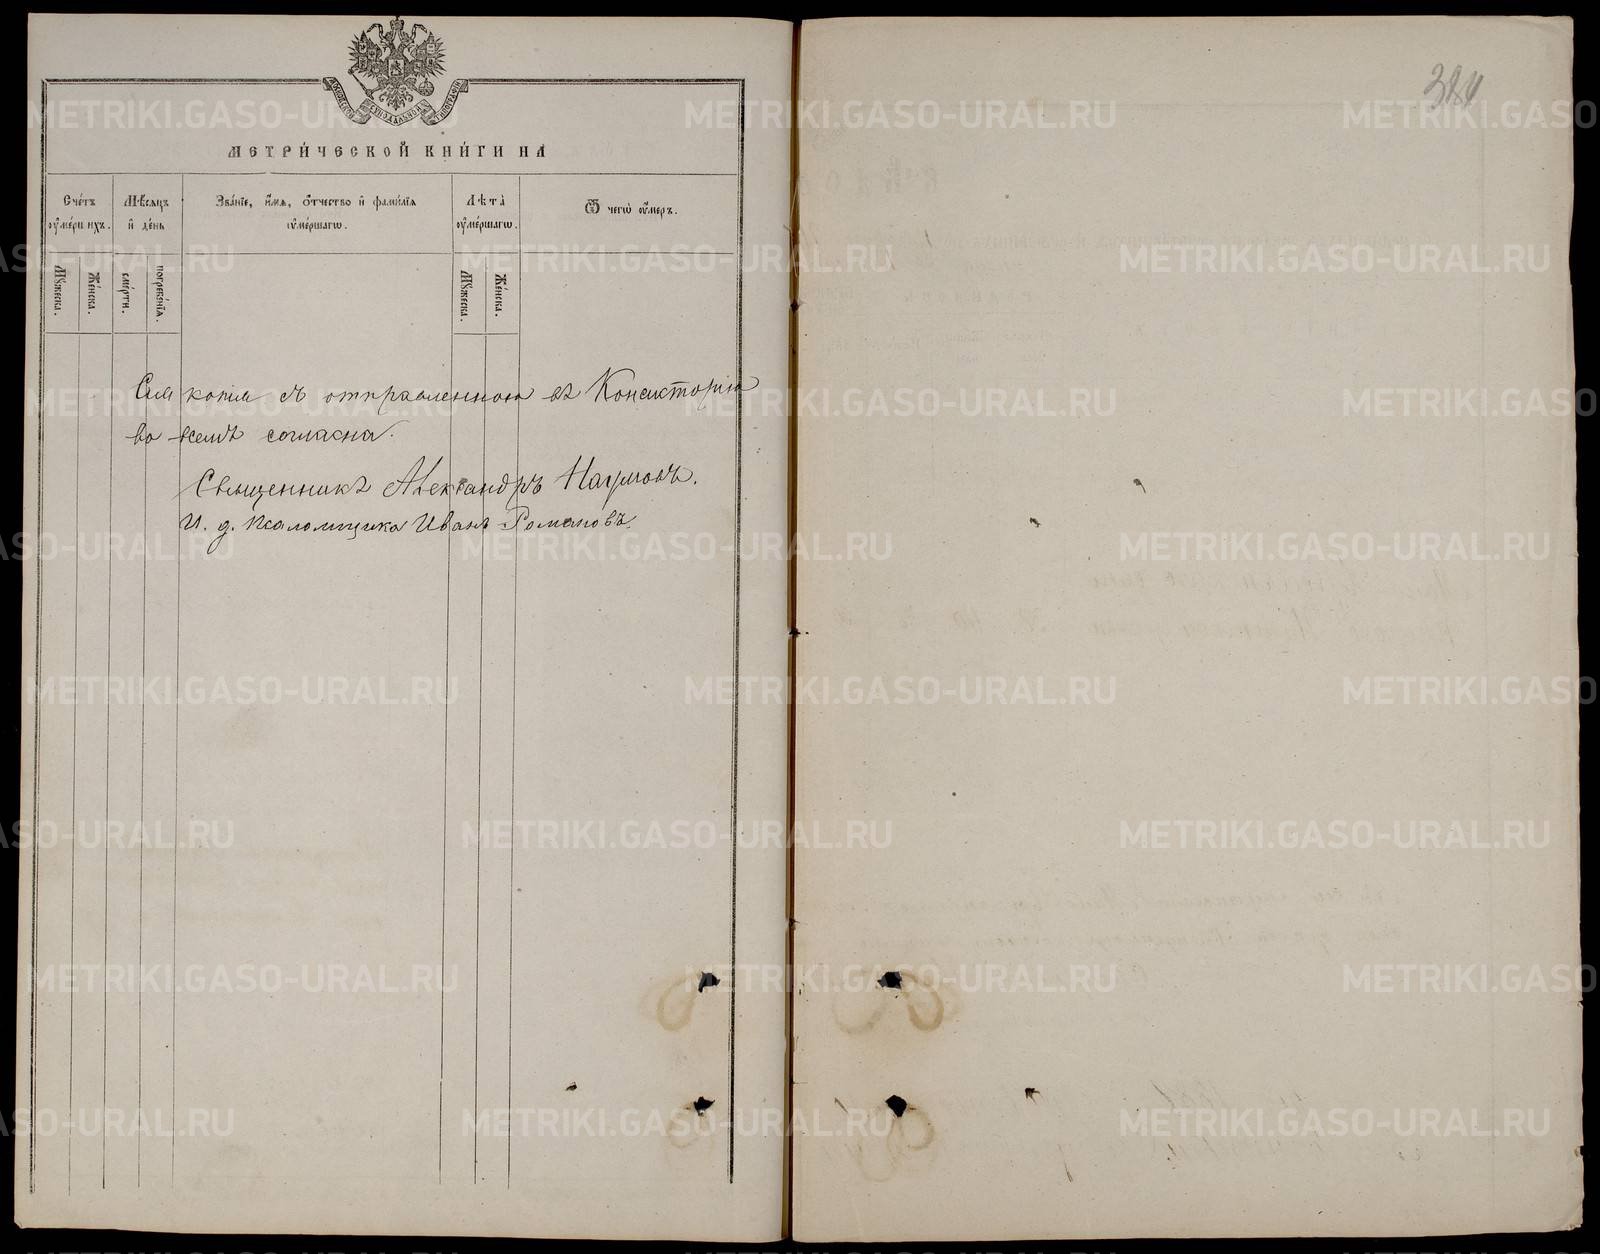 МОСКОВСКОЙ СѴНОДАЛЬНОЙ ТИПОГРАФІИ
МЕТРИ́ЧЕСКОЙ КНИ́ГИ НА
Сче́тъ оу҆ме́ршихъ.
Мѣ́сяцъ и҆ де́нь
Зва́нїе, и҆́мѧ, ѻ҆́тчество и҆ фамі́лїѧ оу҆ме́ршагѡ.
Лѣ́та оу҆ме́ршагѡ.
Ѿ чегѡ̀ оу҆́меръ.
Мꙋ́жеска.
Же́нска.
сме́рти.
погребе́нїѧ.
Мꙋ́жеска.
Же́нска.
Сія копія съ отправленною въ Консисторію
во всемъ согласна.
Священникъ Александръ Наумовъ.
И. д. псаломщика Иванъ Романовъ.
324
METRIKI.GASO-URAL.RU